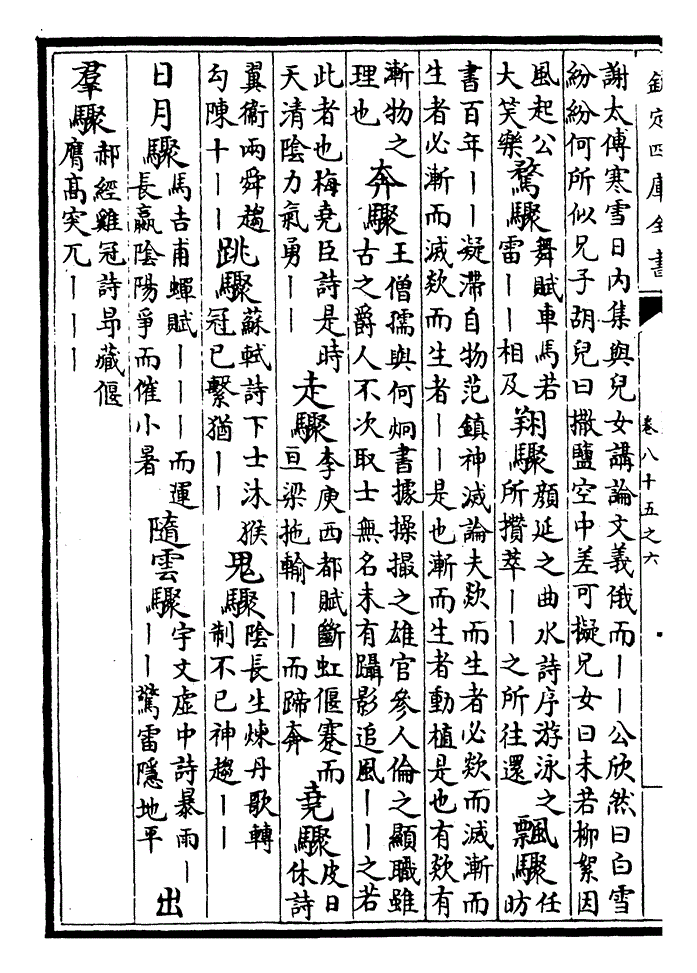 欽定四庫全書
卷八十五之六
謝太傅寒雪日内集與兒女講論文義俄而——公欣然曰白雪
紛紛何所似兄子胡兒曰撒鹽空中差可擬兄女曰未若柳絮因
風起公
大笑樂
騖驟
舞賦車馬若
雷——相及
翔驟
顔延之曲水詩序游泳之
所攢萃——之所往還
飄驟
任
昉
書百年——凝滯自物范鎮神滅論夫欻而生者必欻而滅漸而
生者必漸而滅欻而生者——是也漸而生者動植是也有欻有
漸物之
理也
奔驟
王僧孺與何炯書據操撮之雄官參人倫之顯職雖
古之爵人不次取士無名未有躡影追風——之若
此者也梅堯臣詩是時
天清陰力氣勇——
走驟
李庚西都賦斷虹偃蹇而
亘梁拖輪——而蹄奔
堯驟
皮日
休詩
翼衛兩舜趨
勾陳十——
跳驟
蘇軾詩下士沐猴
冠已繫猶——
鬼驟
陰長生煉丹歌轉
制不已神趨——
日月驟
馬吉甫蟬賦———而運
長贏陰陽爭而催小暑
隨雲驟
宇文虚中詩暴雨—
——驚雷隱地平
出
羣驟
郝經雞冠詩昻藏偃
膺髙突兀———